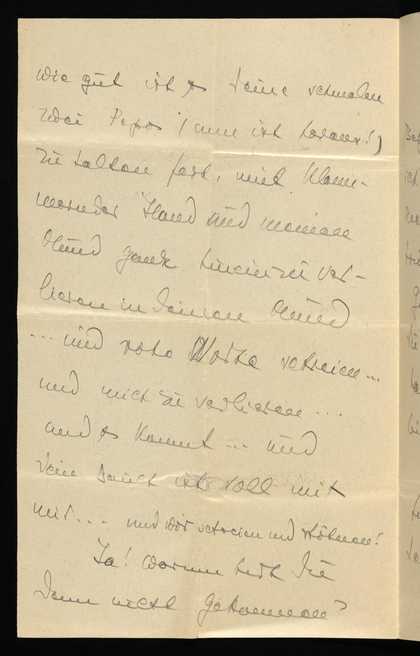 wie gut ist es deine schmalen
zwei Popos (nun ist heraus!)
zu halten fest, mit klam-
mernder Hand und meinen
Mund ganz hinein zu ver-
lieren in deinen Mund
... und rote Worte schreien...
und mich zu verlieren ...
und es kommt ... und
dein Bauch ist voll mit
mir... und wir schreien und stöhnen!
Ja! Warum bist Du
denn nicht gekommen?